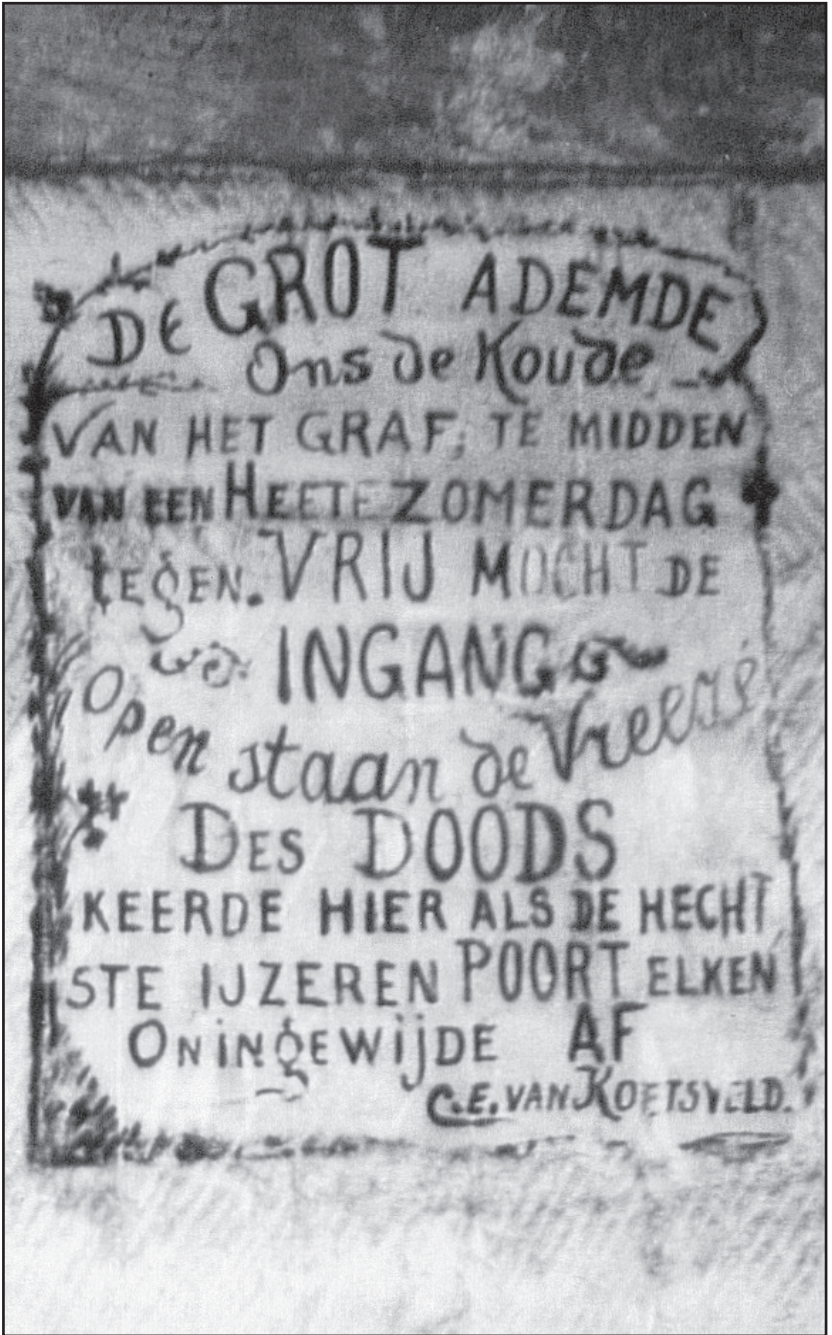 De GROT ADEMDE
Ons de Koude
VAN HET GRAF; TE MIDDEN
VAN EEN HEETE ZOMERDAG
tEgEN. VRIJ MOCHT DE
INGANG
Open staan de Vreeze
DES DOODS
KEERDE HIER ALS DE HECHT
STE IJZEREN POORT ELKEN
ONiNgEWijDE AF
C.E. VAN KOETSVELD.